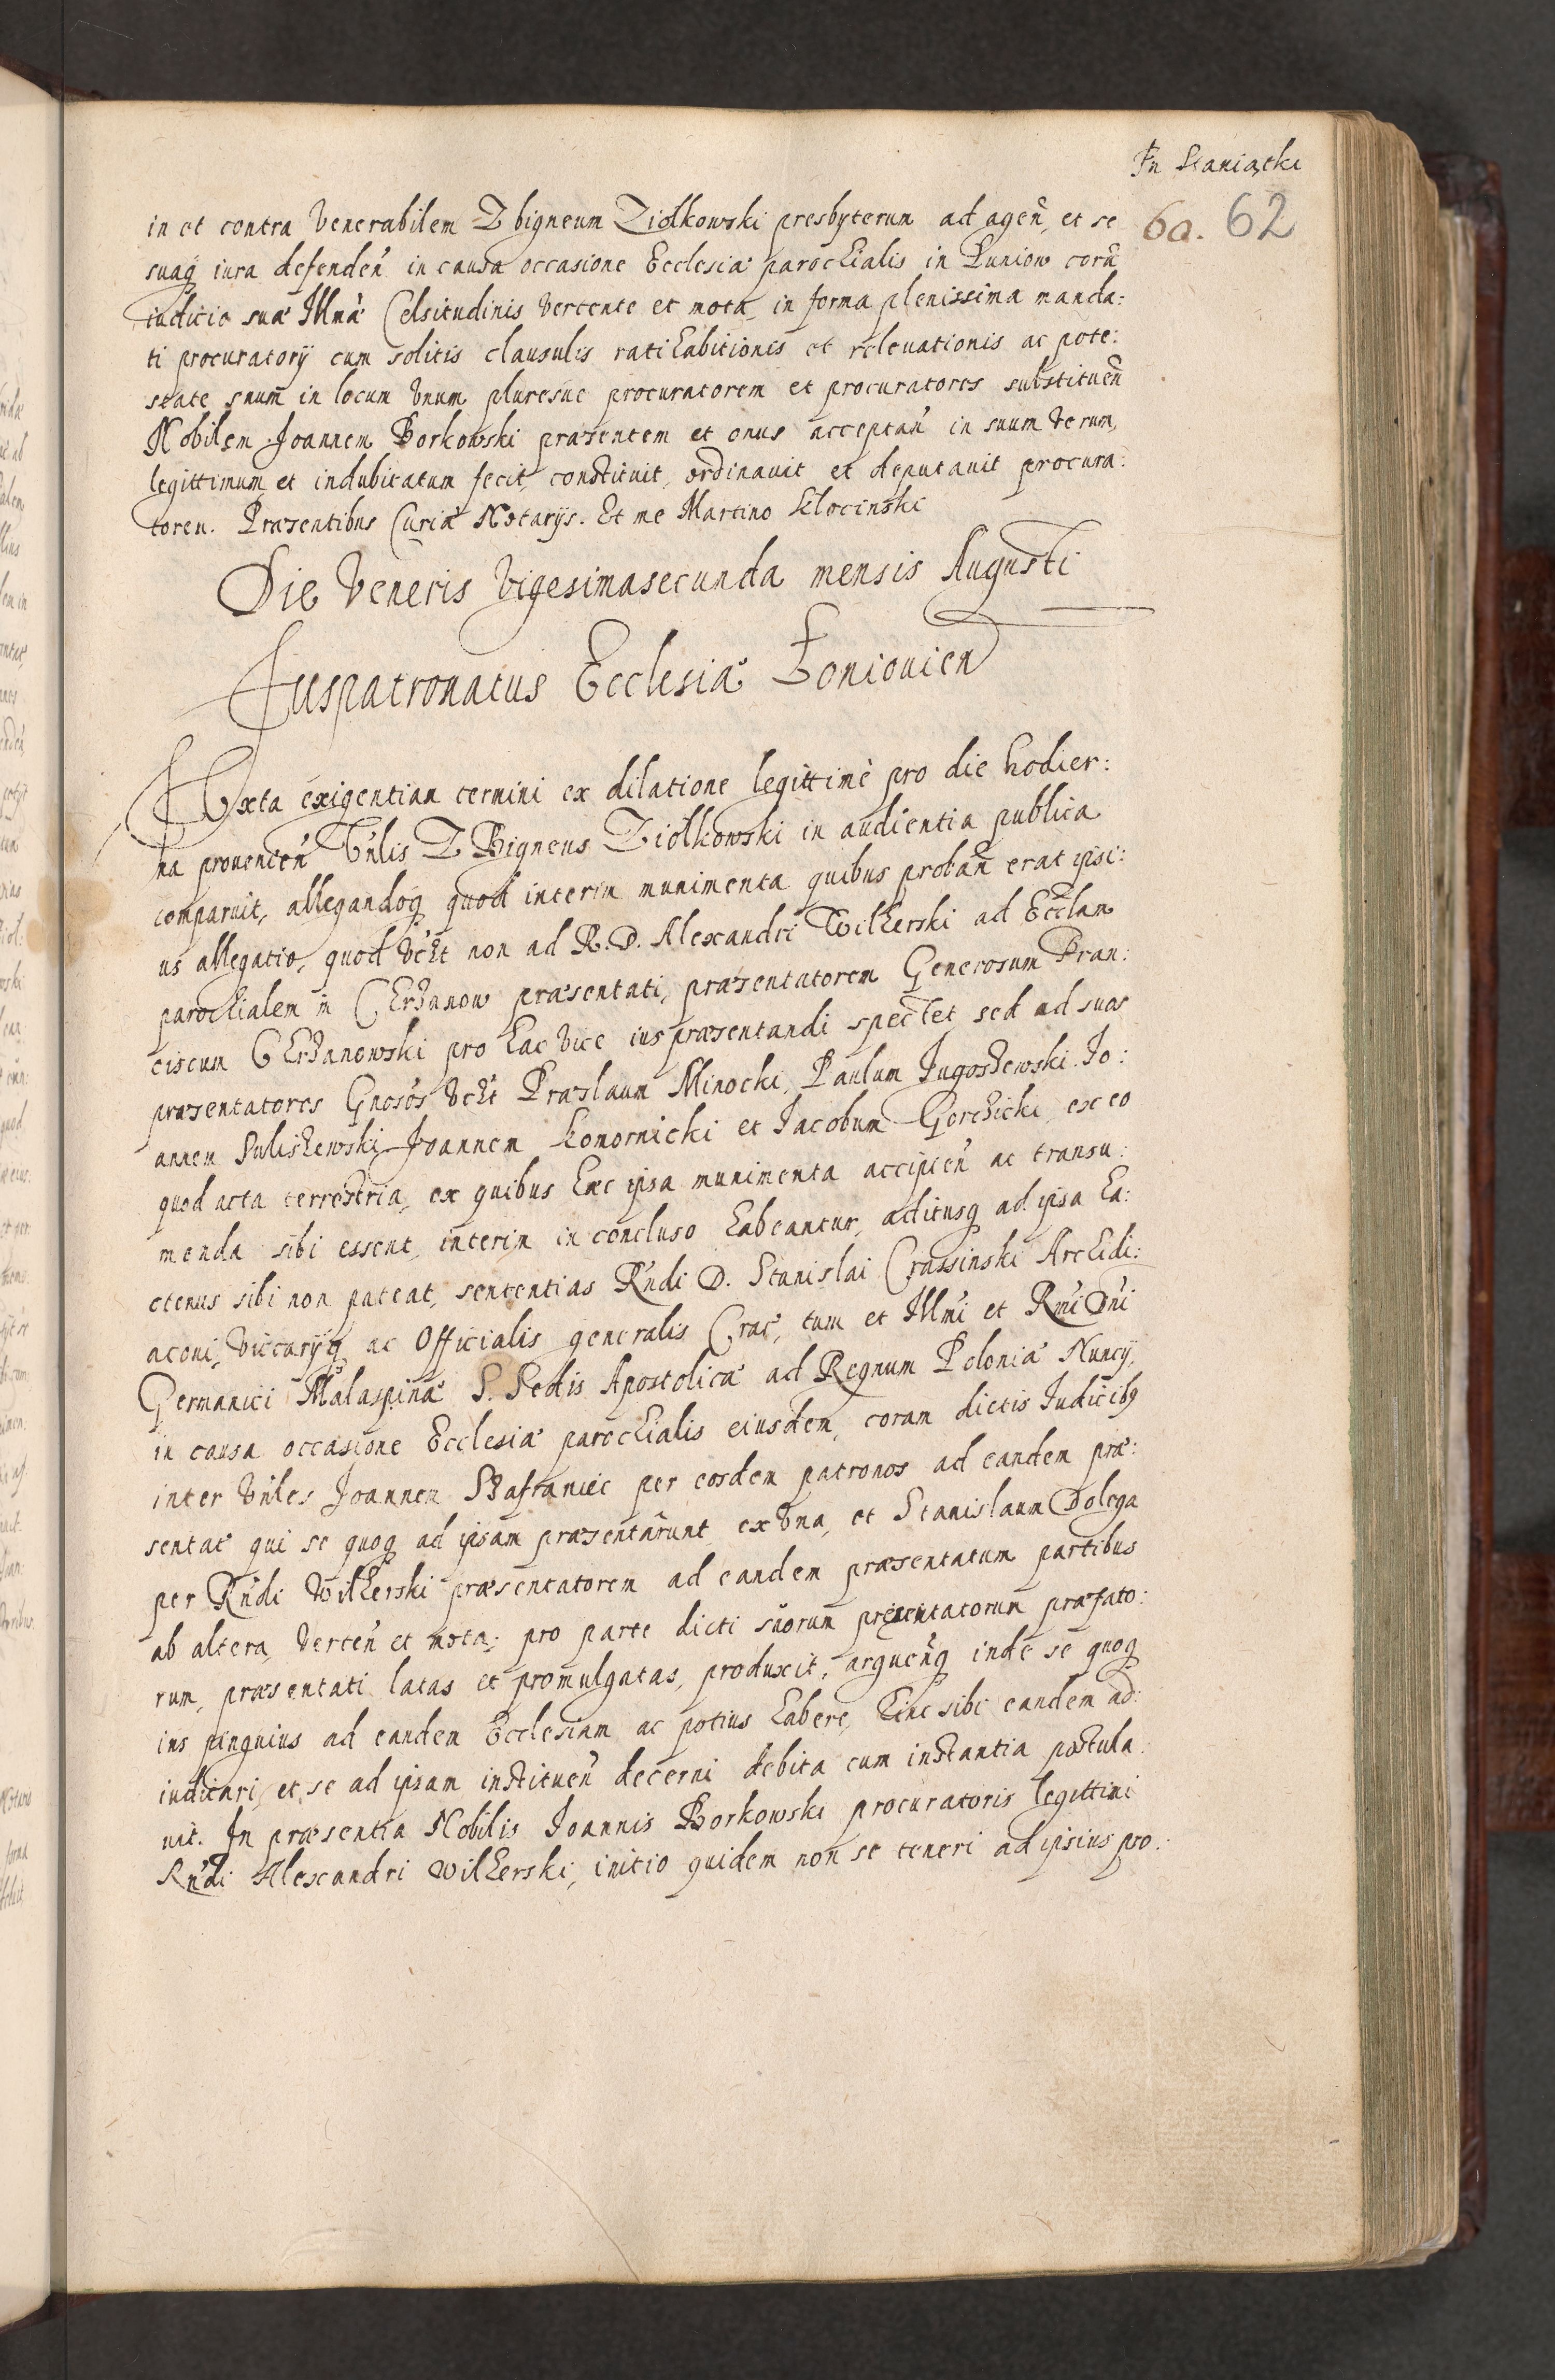 In Staniątki
60. 62
in et contra Venerabilem Zbigneum Ziolkowski presbyterum ad agen̄, et se
suaq iura defenden̄ in causa occasione Ecclesiæ parochialis in Luniow corā
iuditio suæ Illmæ Celsitudinis vertente et mota, in forma plenissima manda:
ti procuratorÿ cum solitis clausulis ratihabitionis et releuationis ac pote:
state suum̄ in locum Vnum pluresue procuratorem et procuratores substituen̄
Nobilem Joannem Borkowski præsentem et onus acceptan̄ in suum verum,
legittimum et indubitatum fecit, constituit, ordinauit et deputauit procura:
torem. Præsentibus Curiæ Notarÿs. Et me Martino Klocinski
Die Veneris Vigesimasecunda mensis Augusti
Juspatronatus Ecclesiæ Łoniouien
IVxta exigentiam termini ex dilatione legittimè pro die hodier:
na prouenien̄ Vn̄lis ZBigneus Ziolkowski in audientia publica
comparuit, allegandoq quod interim munimenta quibus proban̄ erat ipsi:
us allegatio, quod vc̄lt non ad R. D. Alexandri Wilkerski ad Ecclam
parochialem in Chrzanow præsentati, præsentatorem Generosum Fran:
ciscum Chrzanowski pro hac vice ius præsentandi spectet sed ad suos
præsentatores Gnōsos vc̄lt Præslaum Minocki, Paulum Jugoszewski. Jo:
annem Suliszewski, Joannem Komornicki et Jacobum Gorczicki, ex eo
quod acta terrestria, ex quibus hæc ipsa munimenta accipien̄ ac transu:
menda sibi essent, interim in concluso habeantur, aditusq ad ipsa ha:
ctenus sibi non pateat, sententias Rn̄di D. Stanislai Crassinski Archidi:
aconi, Viccarÿq ac Officialis generalis Crac̄, tum et Illm̄i et Rm̄i Dn̄i
Germanici Malaspinæ S. Sedis Apostolicæ ad Regnum Poloniæ Nuncÿ,
in causa occasione Ecclesiæ parochialis eiusdem, coram dictis Judicibꝰ
inter Vn̄les Joannem Szafraniec per eosdem patronos ad eandem præ:
sentat̄ qui se quoq ad ipsam præsentarunt ex Vna, et Stanislaum Dolega
per Rn̄di Wilkerski præsentatorem ad eandem præsentatum partibus
ab altera, verten̄ et mota; pro parte dicti suorum præsentatorum præfato:
rum, præsentati latas et promulgatas, produxit, arguen̄q inde se quoq
ius pinguius ad eandem Ecclesiam ac potius habere, hinc sibi eandem ad:
iudicari, et se ad ipsam instituen̄ decerni debita cum instantia postula:
uit. In præsentia Nobilis Joannis Borkowski procuratoris legittimi
Rn̄di Alexandri Wilkerski, initio quidem non se teneri ad ipsius pro: